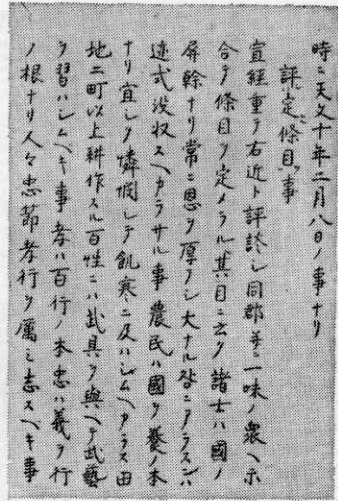 時ニ天文十年二月八日ノ事ナリ
評定條目事
宣経重テ右近ト評談シ同郡并ニ一味ノ衆ヘ示
合テ條目ヲ定メラル其目ニ云ク諸士ハ國ノ
屏幹ナリ常ニ恩ヲ厚フシ大ナル咎ニアラスンハ
達式没収スヘカラサル事農民ハ國ヲ養ノ本
ナリ宜シク憐憫シテ飢寒ニ及ハシムヘカラス田
地二町以上耕作スル百姓ニハ武具ヲ與ヘテ武藝
ヲ習ハシムヘキ事孝ハ百行ノ本忠ハ義ヲ行
ノ根ナリ人々忠節孝行ヲ属シ志スヘキ事